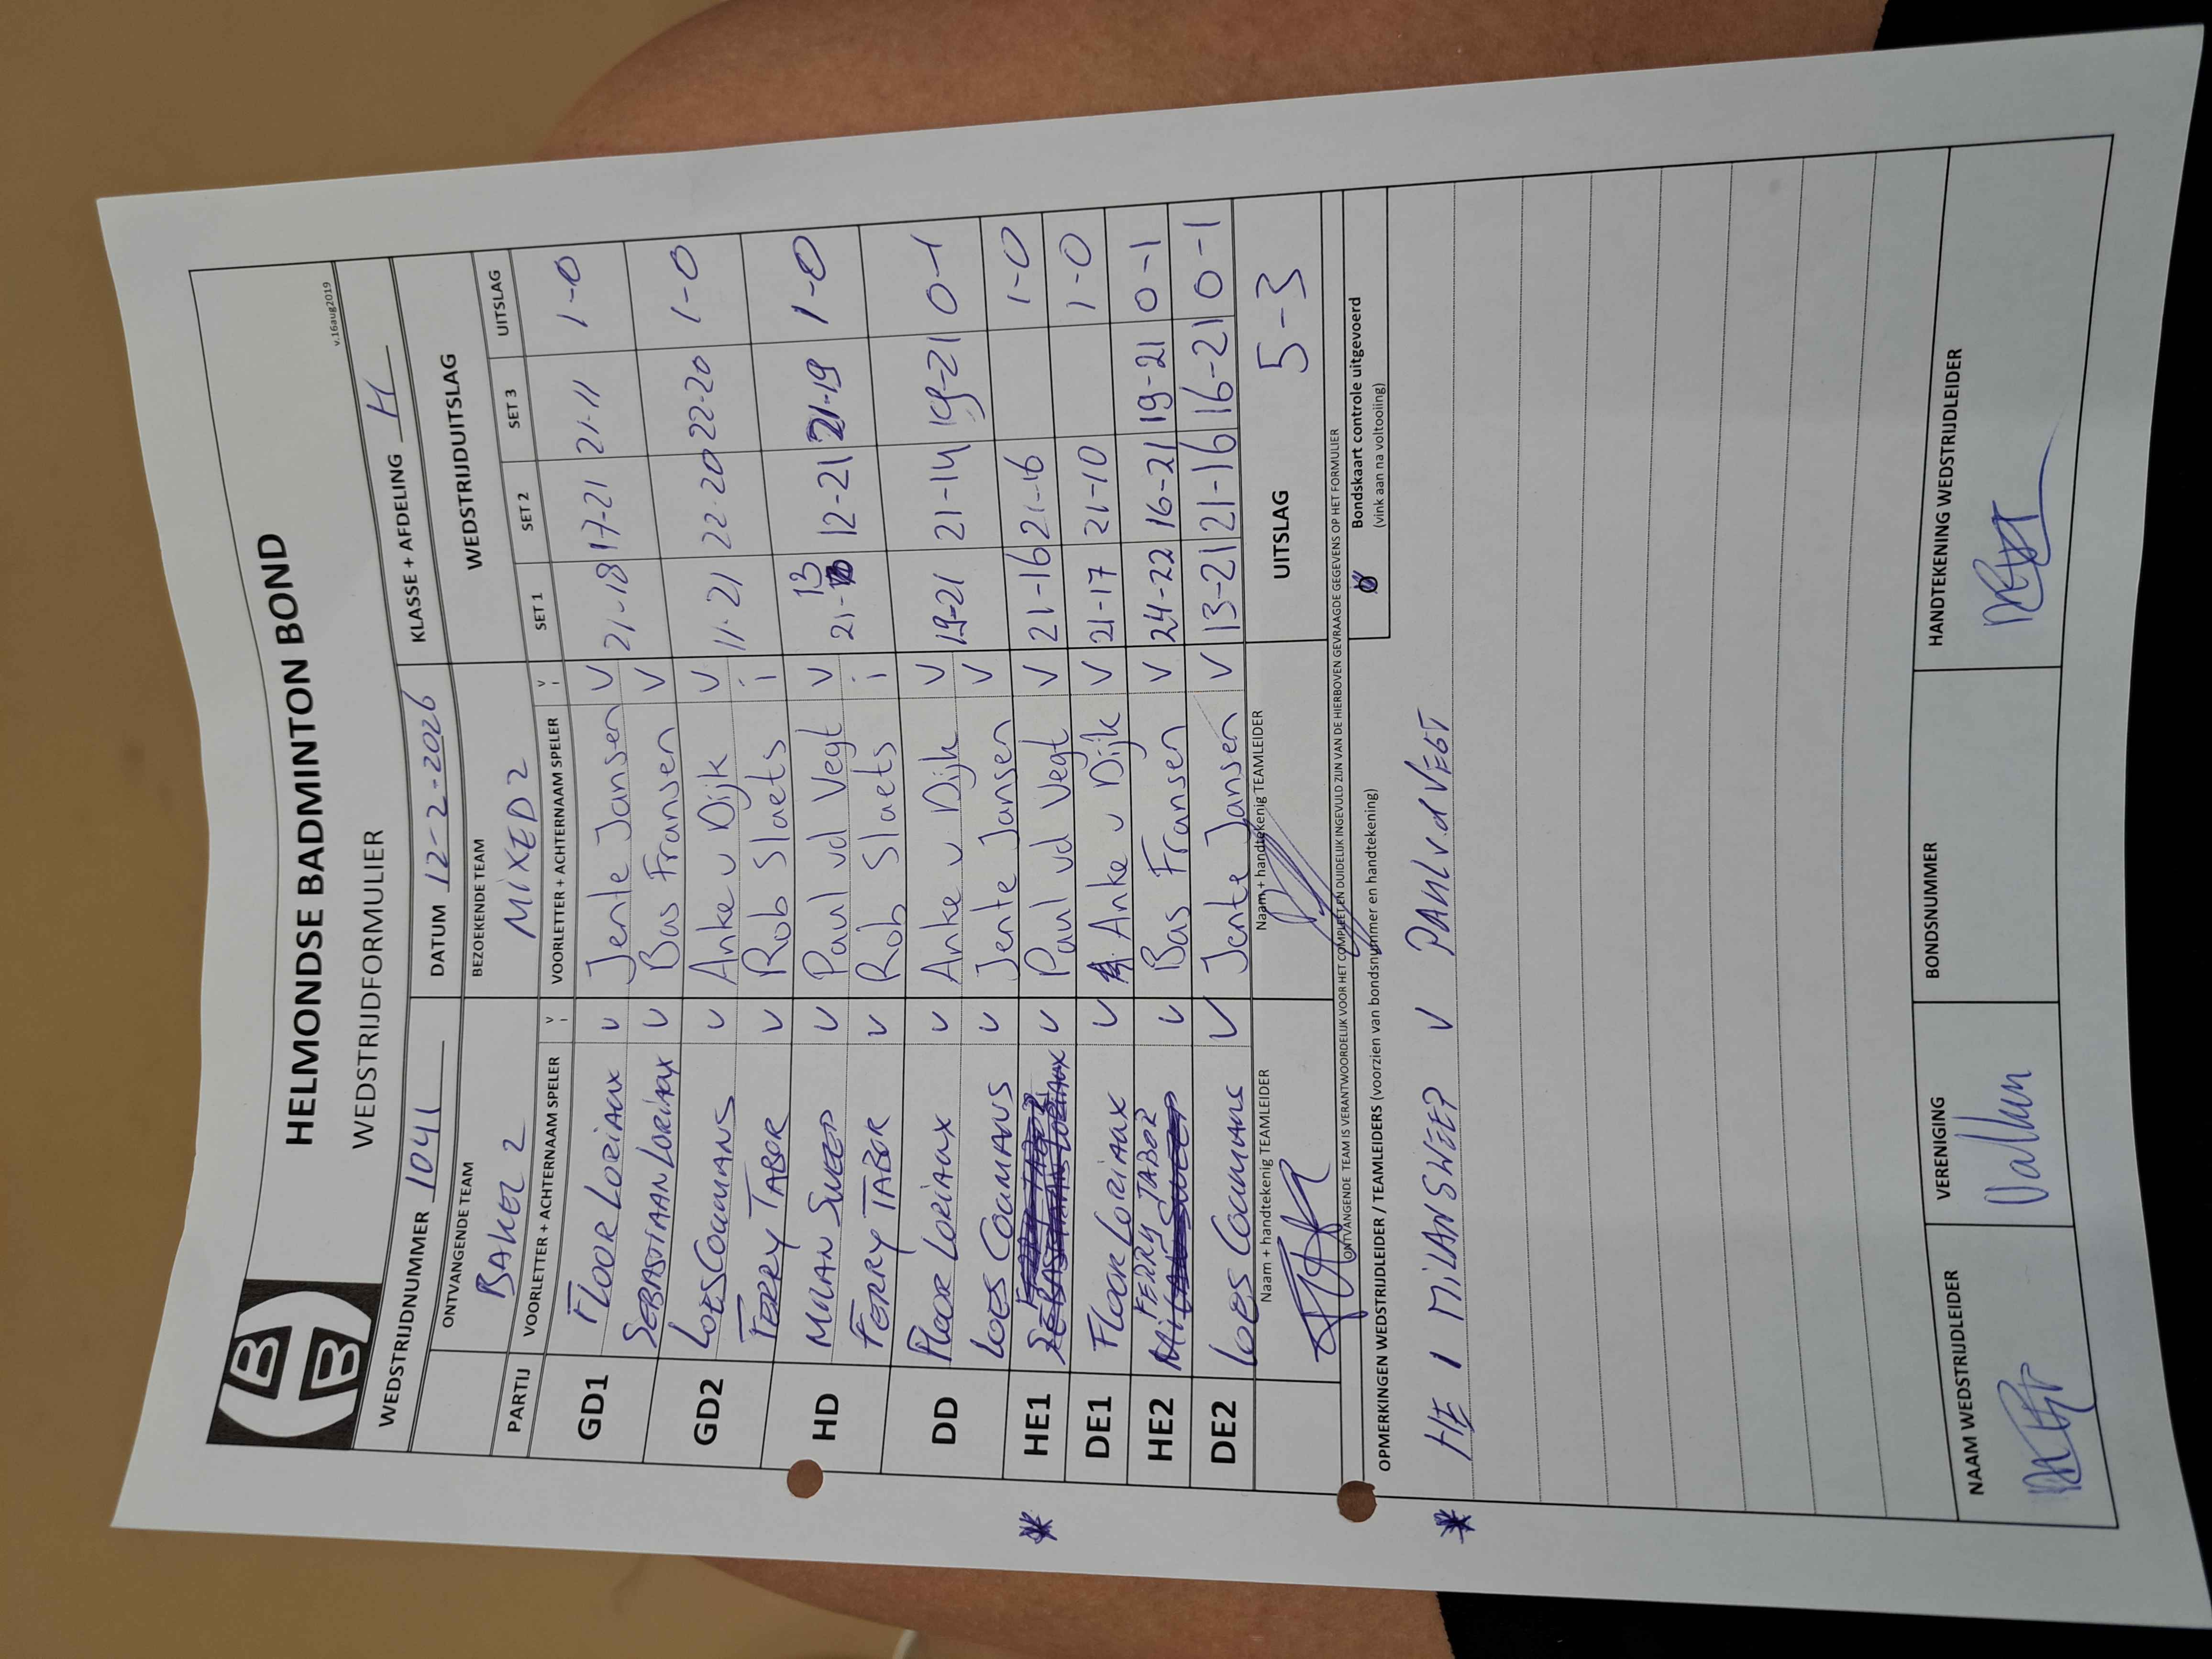 HELMONDSE BADMINTON BOND
WEDSTRIJDFORMULIER
v.16aug2019
WEDSTRIJDNUMMER 1041 DATUM 12-2-2026 KLASSE + AFDELING H
ONTVANGENDE TEAM BEZOEKENDE TEAM WEDSTRIJDUITSLAG
BAKEL 2 MIXED 2
PARTIJ VOORLETTER + ACHTERNAAM SPELER V VOORLETTER + ACHTERNAAM SPELER V SET 1 SET 2 SET 3 UITSLAG
GD1 FLOOR LORIAUX V Jente Jansen V 21-18 17-21 21-11 1-0
SEBASTIAAN LORIAUX V Bas Fransen V
GD2 LOES COUMANS V Anke v Dijk V 11-21 22-20 22-20 1-0
FERRY TABOR V Rob Slaets i
HD MILAN SWEEP V Paul vd Vegt V 21-13 12-21 21-19 1-0
FERRY TABOR V Rob Slaets i
DD FLOOR LORIAUX V Anke v Dijk V 19-21 21-14 19-21 0-1
LOES COUMANS V Jente Jansen V
* HE1 V Paul vd Vegt V 21-16 21-16 1-0
DE1 FLOOR LORIAUX V Anke v Dijk V 21-17 21-10 1-0
HE2 FERRY TABOR V Bas Fransen V 24-22 16-21 19-21 0-1
DE2 LOES COUMANS V Jente Jansen V 13-21 21-16 16-21 0-1
Naam + handtekenig TEAMLEIDER Naam + handtekenig TEAMLEIDER UITSLAG 5-3
ONTVANGENDE TEAM IS VERANTWOORDELIJK VOOR HET COMPLEET EN DUIDELIJK INGEVULD ZIJN VAN DE HIERBOVEN GEVRAAGDE GEGEVENS OP HET FORMULIER
OPMERKINGEN WEDSTRIJDLEIDER / TEAMLEIDERS (voorzien van bondsnummer en handtekening)
Bondskaart controle uitgevoerd
(vink aan na voltooiing)
* HE 1 MILAN SWEEP V PAUL v.d VEGT
NAAM WEDSTRIJDLEIDER VERENIGING BONDSNUMMER HANDTEKENING WEDSTRIJDLEIDER